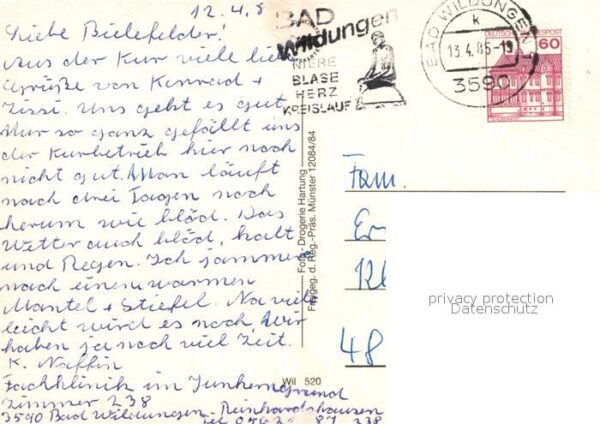 12.4.8
Liebe Bielefelder!
Aus der Kur viele lie
Grüße von Konrad +
Zissi. Uns geht es gut.
Nur so ganz gefällt uns
der Kurbetrieb hier noch
nicht gut. Man läuft
nach drei Tagen noch
herum wie blöd. Das
Wetter auch blöd, kalt
und Regen. Ich jammere
nach einem warmen
Mantel + Stiefel. Na viel
leicht wird es noch. Wir
haben ja noch viel Zeit.
K. Naffin
Fachklinik im Junkerngrund
Zimmer 238
3590 Bad Wildungen-Reinhardshausen
Tel 0562 87 238
BAD
Wildungen
NIERE
BLASE
HERZ
KREISLAUF
BAD WILDUNGEN
k
13.4.85-19
3590
DEUTSCHE BUNDESPOST
60
Foto-Drogerie Hartung
Freigeg. d. Reg.-Präs. Münster 12084/84
Wil 520
Fam.
Er
Kl
48
privacy protection
Datenschutz